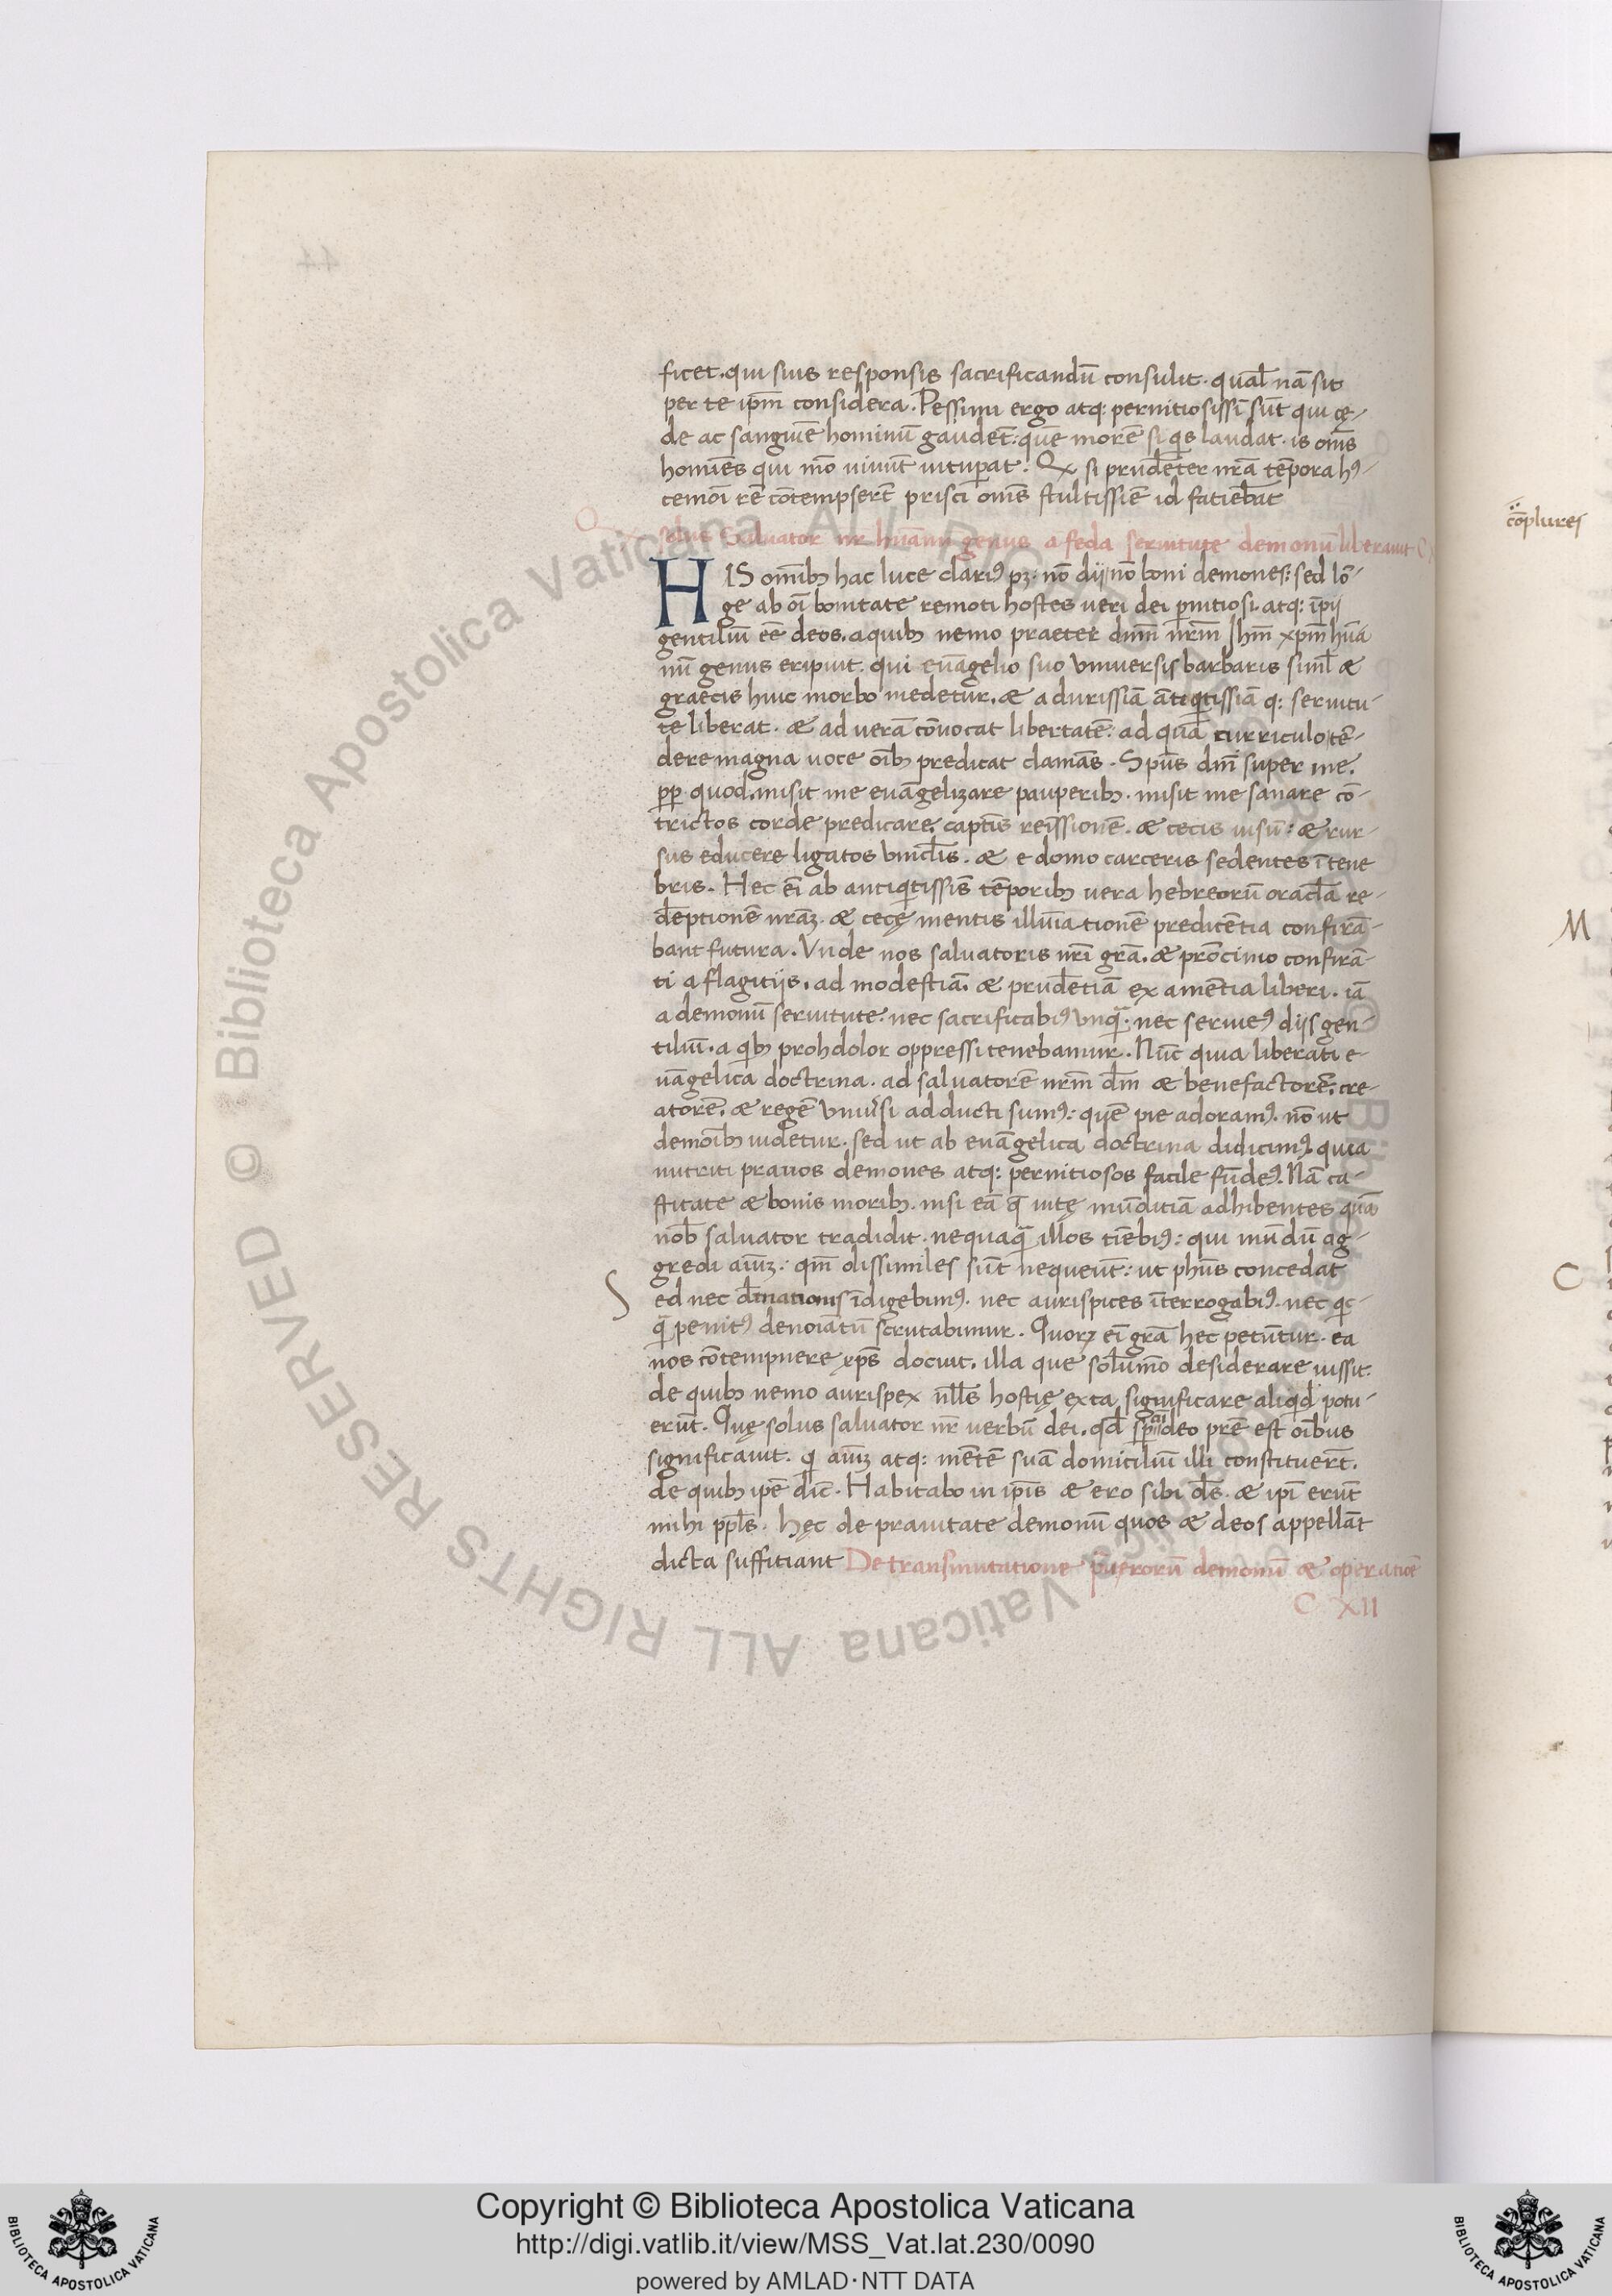 ficet. qui suis responsis sacrificandū consulit. qual̄ nā sit
per te ip̄m considera. Pessimi ergo atq: pernitiosissī sūt qui cę-
de ac sanguīe hominū gaudēt: quē morē si q̄s laudat. is om̄s
homīes qui mō uiuūt uituꝑat. Qꝫ si prudēter nr̄a tēpora hꝰ-
cemōi rē cōtempserūt prisci om̄s stultissīe id fatiebāt
Q solus Saluator nr̄ huānū genus a feda seruitute demonū liberauit C
HIS omībꝫ hac luce clariꝰ pꝫ: nō dij nō boni demones: sed lō-
ge ab oī bonitate remoti hostes ueri dei ꝑnitiosi. atq: īpij
gentiliū eē deos. a quibꝫ nemo praeter dnm̄ nr̄m Ihm̄ xp̄m huā
nū genus eripuit. qui euāgelio suo vniuersis barbaris simĺ &
graecis huic morbo medetur. & a durissīā ātiqtissīā q: seruitu-
te liberat. & ad uerā cōuocat libertatē: ad quā curriculo tē-
dere magna uoce oībꝫ predicat clamās. Spūs dnī super me.
pp̄ quod. misit me euāgelizare pauperibꝫ. misit me sanare cō-
trictos corde predicare. captīs reīssionē. & cecis uisū: & rur-
sus educere ligatos vincĺis. & e domo carceris sedentes ī tene
bris. Hec eī ab antiqtissīs tēporibꝫ uera hebreorū oracĺa re-
dēptionē nr̄aꝫ. & cecę mentis illuīationē predicētia confirā-
bant futura. Vnde nos saluatoris nr̄i gr̄a. & prōcimo confirā-
ti a flagitijs. ad modestiā. & prudētiā ex amētia liberi. iā
a demonū seruitute. nec sacrificabiꝰ vnq̄. nec seruieꝰ dijs gen-
tiliū. a qbꝫ prohdolor oppressi tenebamur. Nūc quia liberati e-
uāgelica doctrina. ad saluatorē nr̄m dm̄ & benefactorē. cre-
atorē. & regē vniūsi adducti sumꝰ: quē pie adoramꝰ. nō ut
demoībꝫ uidetur. sed ut ab euāgelica doctrina didicimꝰ. quia
nutriti prauos demones atq: pernitiosos facile fūdeꝰ. Nā ca-
stitate & bonis moribꝫ. nisi eā q̄ uitę mūditiā adhibentes quā
nob̄ saluator tradidit. nequaq̄ illos tīebiꝰ: qui mūdū ag-
gredi aīuꝫ. qm̄ dissimiles sūt nequeūt: ut phūs concedat
Sed nec dīnationis īdigebimꝰ. nec aurispices īterrogabiꝰ. nec qc-
q̄ penitꝰ denoīatū scrutabimur. Quoꝝ eī gr̄a hec petūtur. ea
nos cōtempnere xp̄s docuit. illa que soĺumō desiderare iussit.
de quibꝫ nemo aurispex nĺĺs hostię exta significare aliqd potu-
erūt. Quę solus saluator nr̄ uerbū dei. qd̄ deo pr̄e est oībus
significauit. q aīuꝫ atq: mētē suā domiciliū illi constituerūt.
de quibꝫ ipē dīc. Habitabo in ip̄is & ero sibi d̄s. & ip̄i erūt
mihi ppĺs. Hęc de prauitate demonū quos & deos appellāt
dicta suffitiant De transmutatione demonū & operatiōe
C XII
cōplures
M
C
44
Copyright © Biblioteca Apostolica Vaticana
http://digi.vatlib.it/view/MSS_Vat.lat.230/0090
powered by AMLAD·NTT DATA
BIBLIOTECA APOSTOLICA VATICANA
BIBLIOTECA APOSTOLICA VATICANA
© Biblioteca Apostolica Vaticana ALL RIGHTS RESERVED